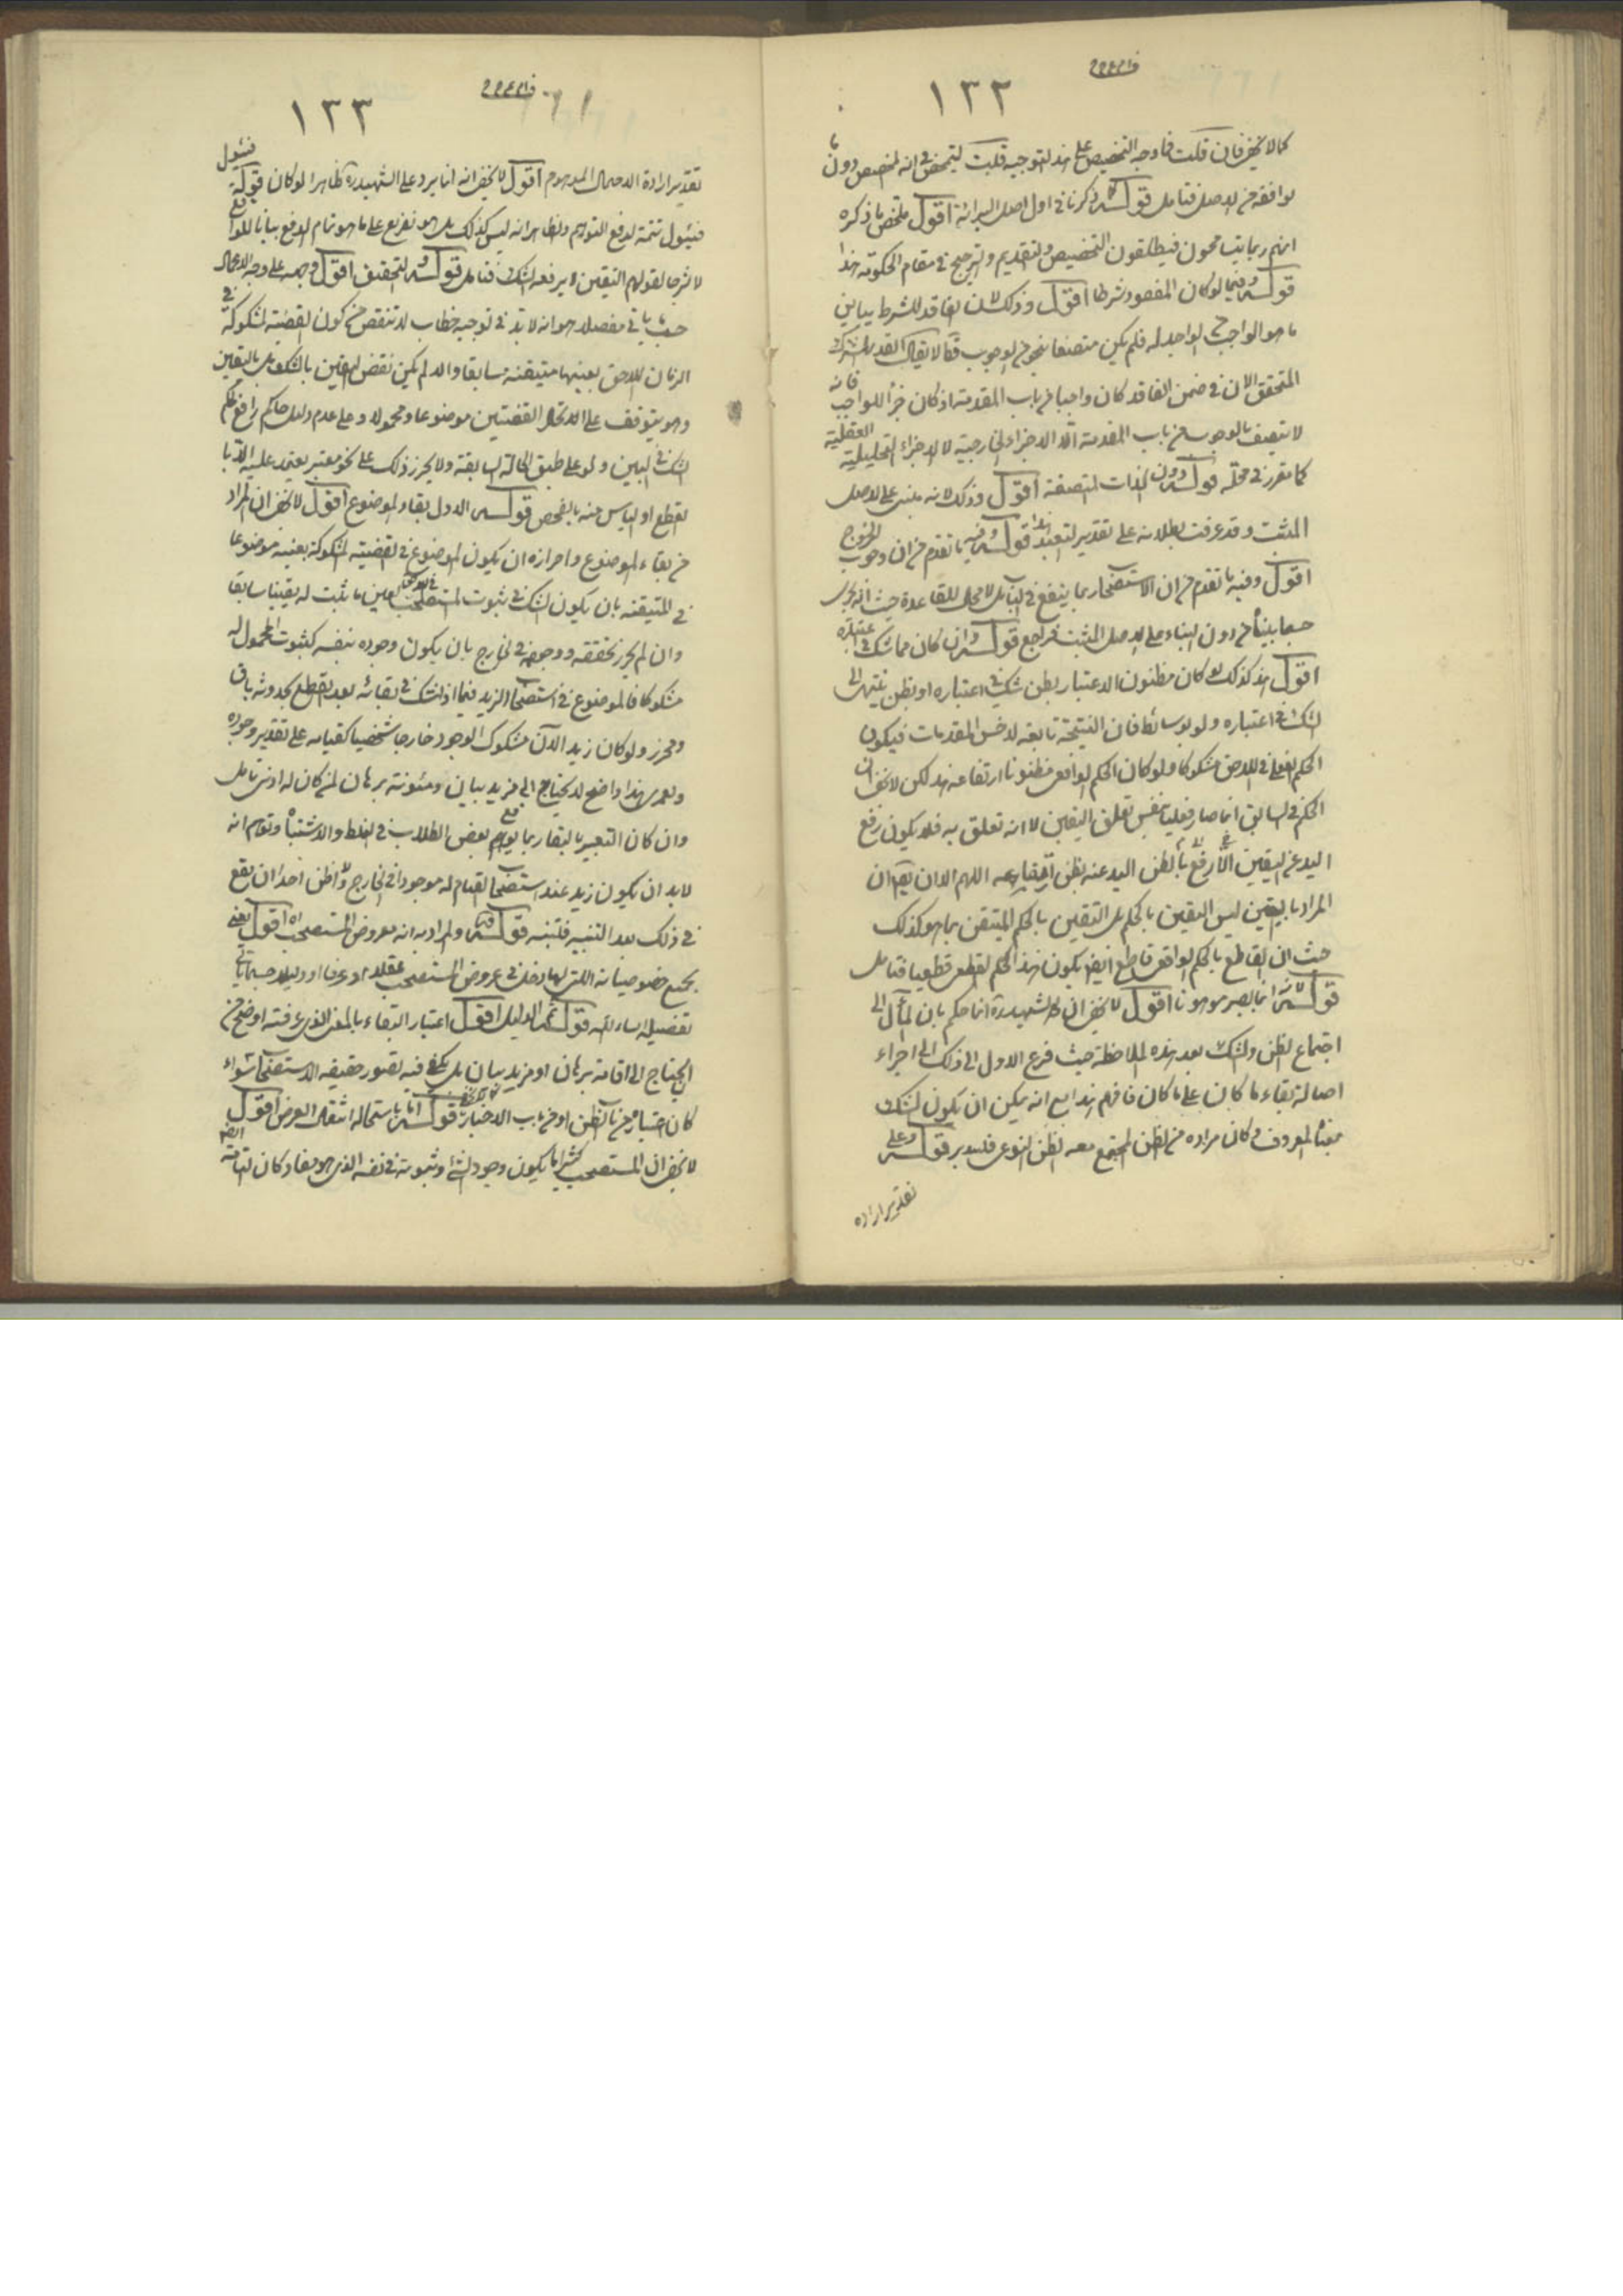 ١٣٢
كما لا يخفى فان قلت فما وجه التخصيص على هذا التوجيه قلت ليتمحض في انه لمخصص دون ما
لو افقه من الاصل فتامل قوله ذكرنا في اول اصل البرائة اقول ملخص ما ذكره
انهم ربما يتسامحون فيطلقون التخصيص والتقديم والترجيح في مقام الحكومة هذا
قوله فيما لو كان المفقود شرطا اقول وذلك لان الفاقد للشرط يباين
ما هو الواجب الواجد له فلم يكن متصفا بنحو من الوجوب لا يقال القدر المشترك
المتحقق الان في ضمن الفاقد كان واجبا من باب المقدمة اذ كان جزء للواجب فانه
لا يتصف بالوجوب من باب المقدمة الا الاجزاء الخارجية لا الاجزاء التحليلية العقلية
كما تقرر في محله قوله دون الذات المتصفة اقول وذلك لانه مبنى على الاصل
المثبت وقد عرفت بطلانه على تقدير التعبد قوله وفيه ما تقدم من ان وجوب الخروج
اقول وفيه ما تقدم من ان الاستصحاب بما ينفع في الباب بل لا محل للقاعدة حيث انه يجرى
حسبما بيناه من دون البناء على الاصل المثبت فراجع قوله وان كان مما شك في اعتباره
اقول هذا كذلك لو كان مظنون الاعتبار بظن شك في اعتباره او بظن ينتهى الى
الشك في اعتباره ولو بوسائط فان النتيجة تابعة لاخس المقدمات فيكون
الحكم الفعلى في اللاحق مشكوكا ولو كان الحكم الواقعى مظنونا ارتفاعه هذا لكن لا يخفى ان
الحكم في السابق انما صار فعليا بنفس تعلق اليقين لا انه تعلق به فلا يكون رفع
اليد عن اليقين الا رفع بالظن اليد عنه بظن اللهم الا ان يقال ان
المراد باليقين ليس اليقين بالحكم بل اليقين بالحكم المتيقن بما هو كذلك
حيث ان القاطع بالحكم الواقعى قاطع ايضا بكون هذا الحكم الفعلى قطعيا فتامل
قوله انما يصير موهونا اقول لا يخفى ان الشهيد ره انما حكم بان المآل الى
اجتماع الظن والشك بعد هذه الملاحظة حيث فرع الاول الى ذلك الى اجراء
اصالة بقاء ما كان على ما كان فافهم هذا مع انه يمكن ان يكون الشك
بمعناه المعروف وكان مراده من الظن المجتمع معه الظن النوعى فليتدبر قوله وعلى
تقدير ارادة
١٣٣
تقدير ارادة الاحتمال الموهوم اقول لا يخفى انه انما يرد على الشهيد ره ظاهرا لو كان قوله فيئول
فيئول تتمة لدفع التوهم والظاهر انه ليس كذلك بل هو تفريع على ما هو تمام الدفع بيانا للواقع
لا شرحا لقولهم اليقين لا يرفعه الشك فتامل قوله والتحقيق اقول وجهه على وجه الاجمال
حيث ياتى مفصلا هو انه لا بد في توجيه خطاب لا تنقض من كون القضية المشكوكة في
الزمان اللاحق بعينها متيقنة سابقا والا لم يكن نقض اليقين بالشك بل باليقين
وهو يتوقف على اتحاد القضيتين موضوعا ومحمولا وعلى عدم دليل حاكم رافع لحكم
الشك في البين ولو على طبق الحالة السابقة ولا يحرز ذلك على نحو معتبر يعتمد عليه الا با
لقطع او الياس منه بالفحص قوله الاول بقاء الموضوع اقول لا يخفى ان المراد
من بقاء الموضوع واحرازه ان يكون الموضوع في القضية المشكوكة بعينه موضوعا
في المتيقنة بان يكون الشك في ثبوت المستصحب لعين ما ثبت له يقينا سابقا
وان لم يحرز تحققه ووجوده في الخارج بان يكون وجوده بنفسه كثبوت المحمول له
مشكوكا فالموضوع في استصحاب الزيد فيما اذا شك في بقائه بعد القطع بحدوثه باق
ومحرز ولو كان زيد الآن مشكوك الوجود خارجا شخصيا كقيامه على تقدير وجوده
ولعمرى هذا واضح لا يحتاج الى مزيد بيان ومئونة برهان لمن كان له ادنى تامل
وان كان التعبير بالبقاء ربما يوهم يوقع بعض الطلاب في الغلط والاشتباه وتوهم انه
لا بد ان يكون زيد عند استصحاب القيام له موجودا في الخارج ولا اظن احدا ان يقع
في ذلك بعد التنبيه فتنبه قوله والمراد به انه معروض المستصحب اه اقول يعنى
بجميع خصوصياته اللتى لها دخل في عروض المستصحب عقلا او عرفا او دليلا حسبما ياتى
تفصيله ان شاء الله قوله ثم الدليل اقول اعتبار البقاء بالمعنى الذى عرفته اوضح من
ان يحتاج الى اقامة برهان او مزيد بيان بل يكفى فيه تصور حقيقة الاستصحاب سواء
كان اعتباره من باب الظن او من باب الاخبار قوله اما باستحالة انتقال العرض اقول
لا يخفى ان المستصحب كثيرا ما يكون وجود الشئ وثبوته في نفسه الذى هو مفاد كان التامة ايضا